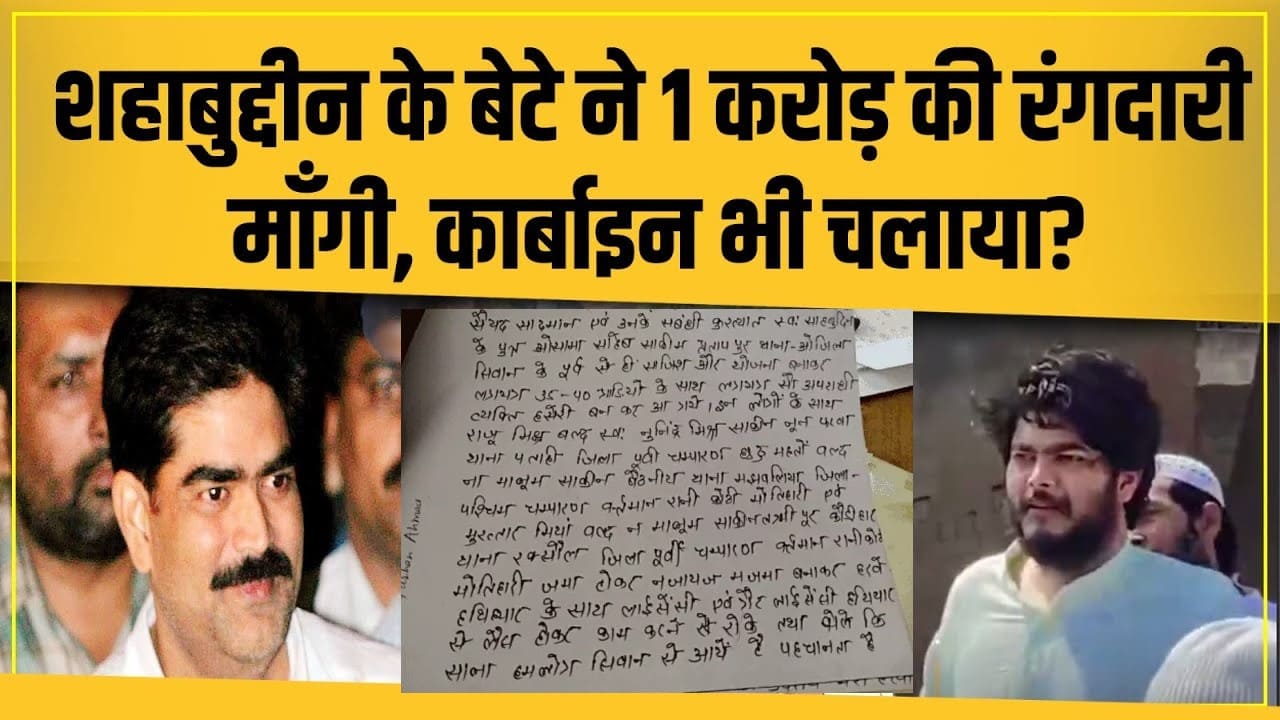 शहाबुद्दीन के बेटे ने 1 करोड़ की रंगदारी
माँगी, कार्बाइन भी चलाया?
सैयद सादमान एवं उनके सबंधी कुख्यात स्व: साहबुदिन
के पुत्र ओसामा साहेब साकीम प्रतापपुर थाना-
सिवान के पूर्व से ही साजिश और योजना बनाकर
लगभग 35-40 गाडियों के साथ लगभग सौ अपराधी
व्यक्ति हसेरी बन कर आ गये। इन लोगों के साथ
राजू सिंह वल्द स्व: सिंह साकीन
थाना पताही जिला पूर्वी चम्पारण महतों वल्द
ना मालूम साकीन थाना मझवलिया जिला-
पश्चिम चम्पारण वर्तमान रानी कोठी मोतिहारी एवं
मियां वल्द न मालूम साकीन लक्ष्मीपुर
थाना रक्सौल जिला पूर्वी चम्पारण वर्तमान रानीकोठी
मोतिहारी जमा होकर नजायज मजमा बनाकर हरवे
हथियार के साथ लाईसेंसी एवं गैर लाईसेंसी हथियार
से लैस होकर काम करने से रोके तथा बोले कि
साला हमलोग सिवान से आये है पहचानता है
Ahmad